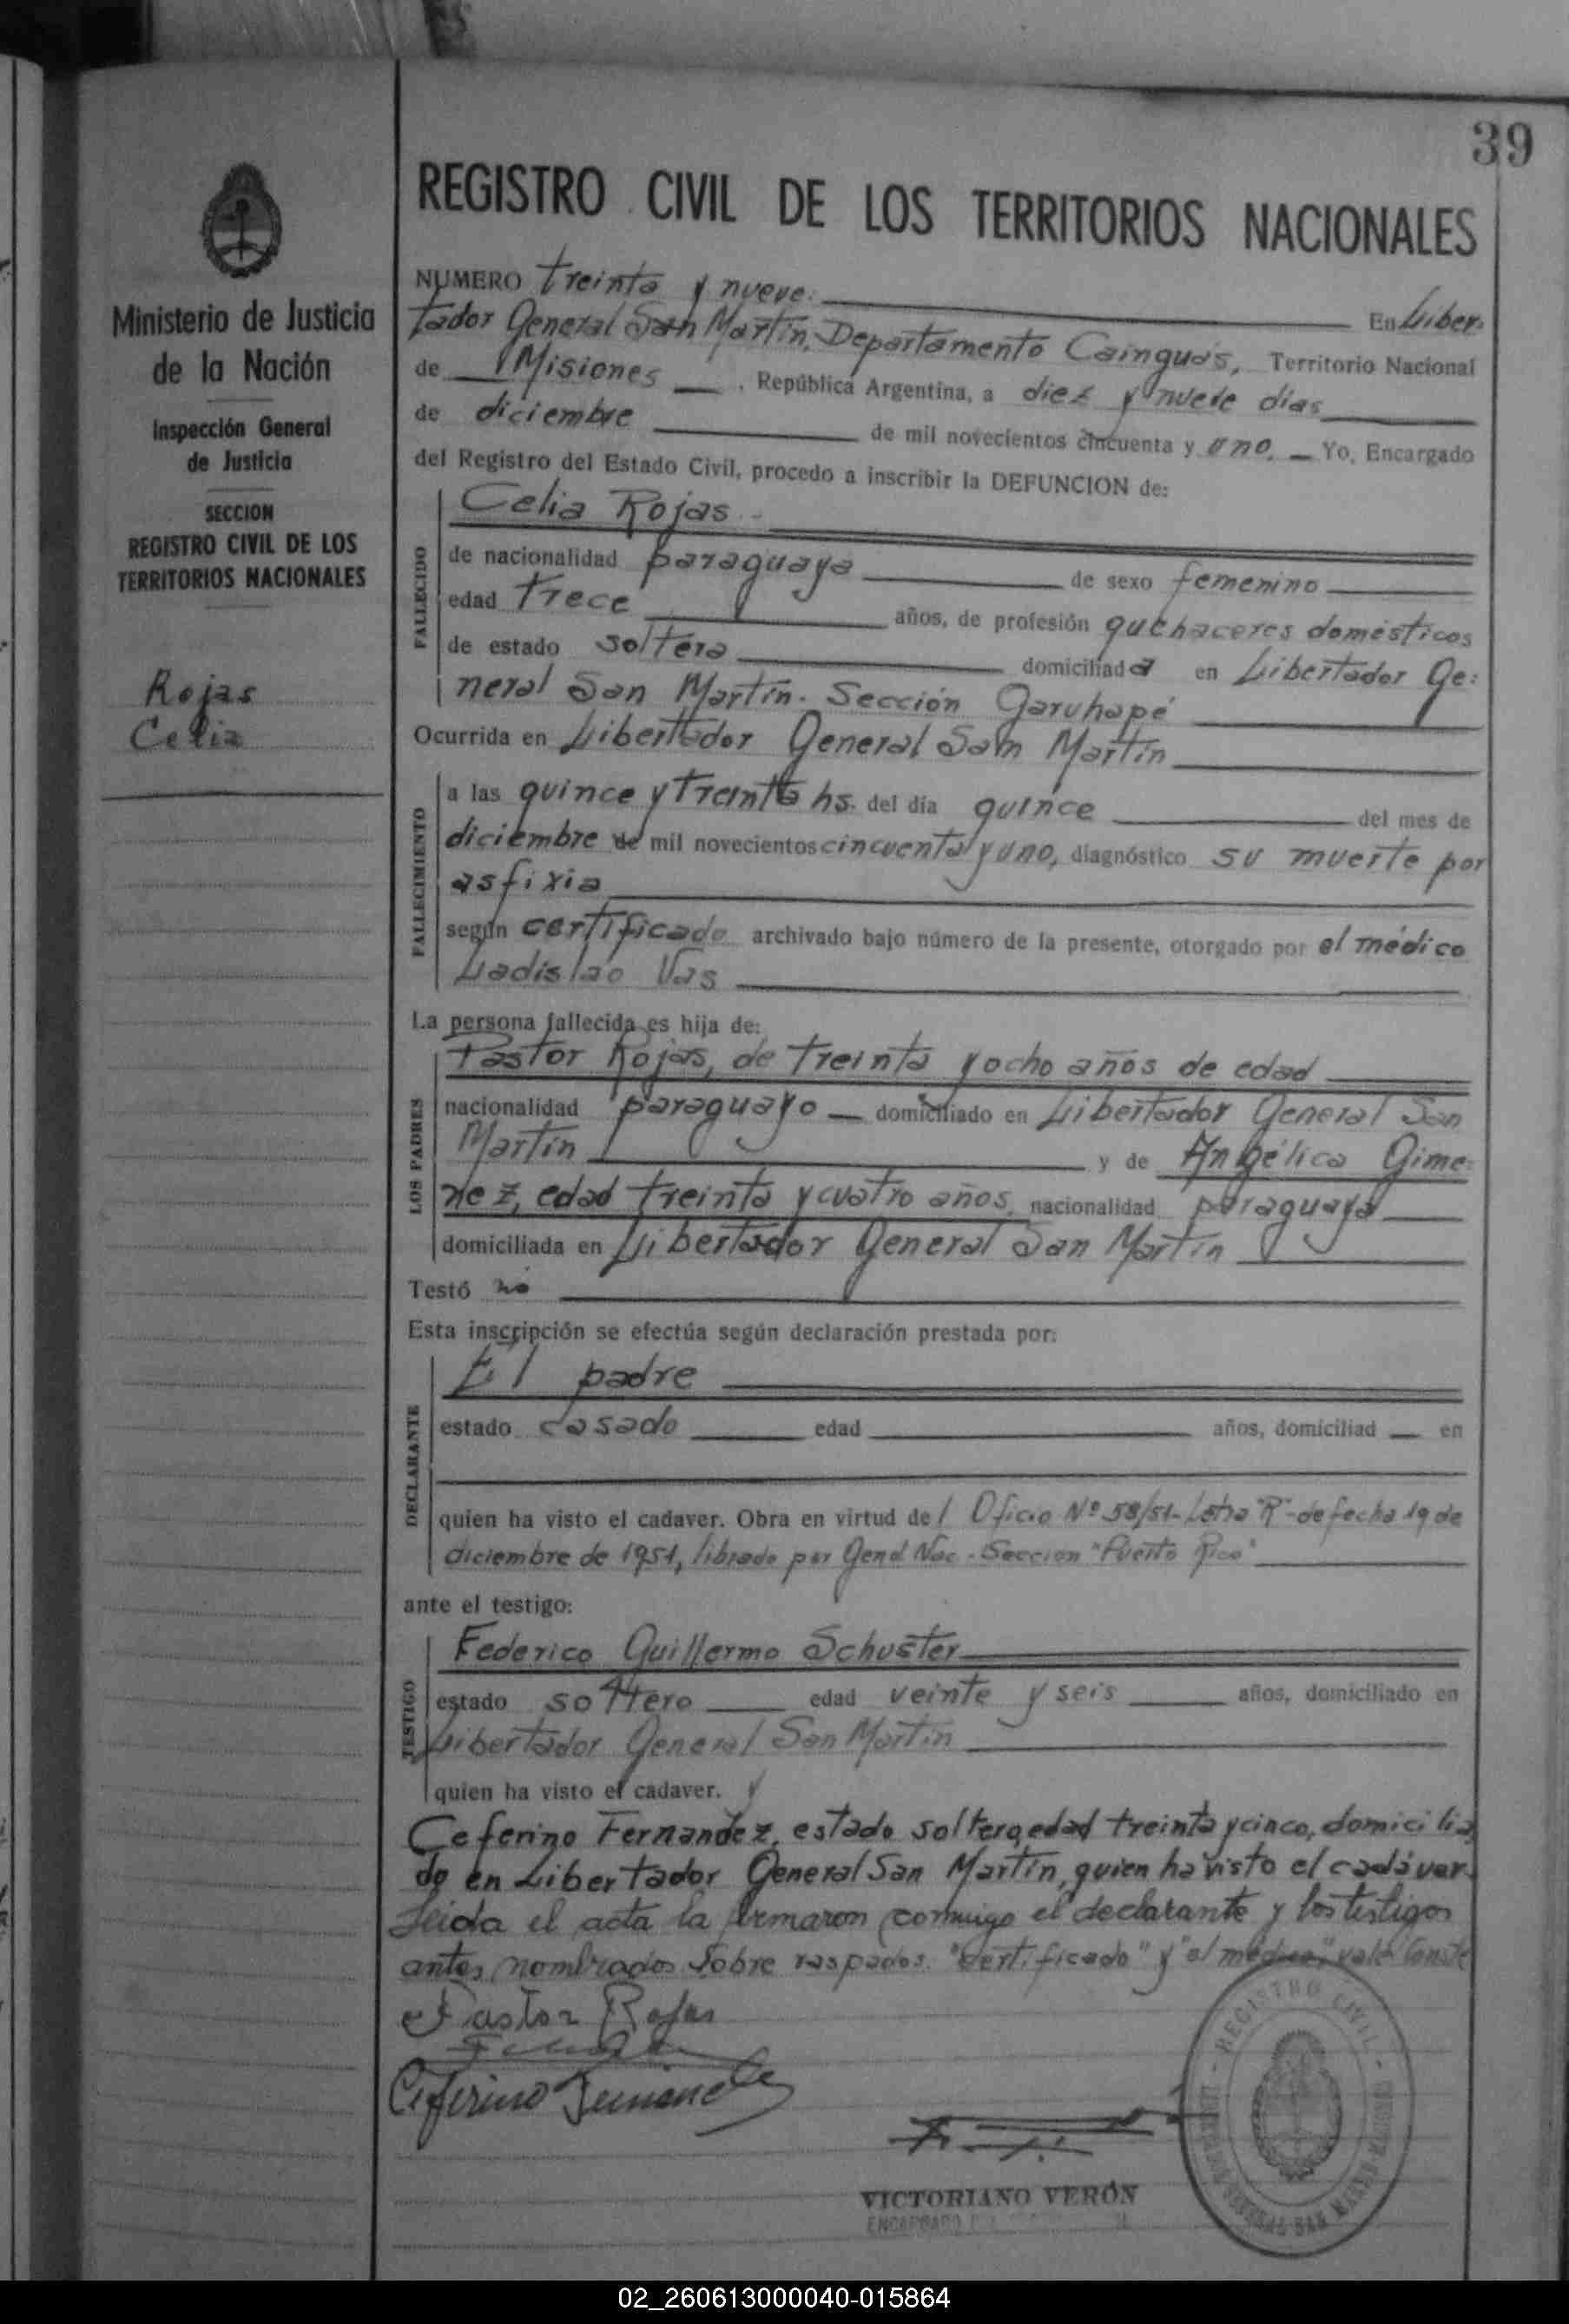 39
REGISTRO CIVIL DE LOS TERRITORIOS NACIONALES
Ministerio de Justicia
de la Nación
Inspección General
de Justicia
SECCION
REGISTRO CIVIL DE LOS
TERRITORIOS NACIONALES
Rojas
Celia
NUMERO treinta y nueve. En Liber-
tador General San Martín, Departamento Cainguás, Territorio Nacional
de Misiones, República Argentina, a diez y nueve días
de diciembre de mil novecientos cincuenta y uno. Yo, Encargado
del Registro del Estado Civil, procedo a inscribir la DEFUNCION de:
FALLECIDO
Celia Rojas
de nacionalidad paraguaya de sexo femenino
edad trece años, de profesión quehaceres domésticos
de estado soltera domiciliada en Libertador Ge-
neral San Martín. Sección Garuhapé
Ocurrida en Libertador General San Martín
FALLECIMIENTO
a las quince y treinta hs. del día quince del mes de
diciembre de mil novecientos cincuenta y uno, diagnóstico su muerte por
asfixia
según certificado archivado bajo número de la presente, otorgado por el médico
Ladislao Vas
La persona fallecida es hija de:
LOS PADRES
Pastor Rojas, de treinta y ocho años de edad
nacionalidad paraguayo domiciliado en Libertador General San
Martín y de Angélica Gime-
nez, edad treinta y cuatro años, nacionalidad paraguaya
domiciliada en Libertador General San Martín
Testó no
Esta inscripción se efectúa según declaración prestada por:
DECLARANTE
El padre
estado casado edad años, domiciliad en
quien ha visto el cadaver. Obra en virtud del Oficio Nº 58/51-Letra "R"-de fecha 19 de
diciembre de 1951, librado por Gend. Nac. Sección "Puerto Rico"
ante el testigo:
TESTIGO
Federico Guillermo Schuster
estado soltero edad veinte y seis años, domiciliado en
Libertador General San Martín
quien ha visto el cadaver. y
Ceferino Fernandez, estado soltero, edad treinta y cinco, domicilia
do en Libertador General San Martín, quien ha visto el cadáver.
Leida el acta la firmaron conmigo el declarante y los testigos
antes nombrados. Sobre raspados: "certificado" y "el médico", vale. Conste
Pastor Rojas
Ceferino Fernandez
VICTORIANO VERÓN
ENCARGADO
REGISTRO CIVIL
02_260613000040-015864